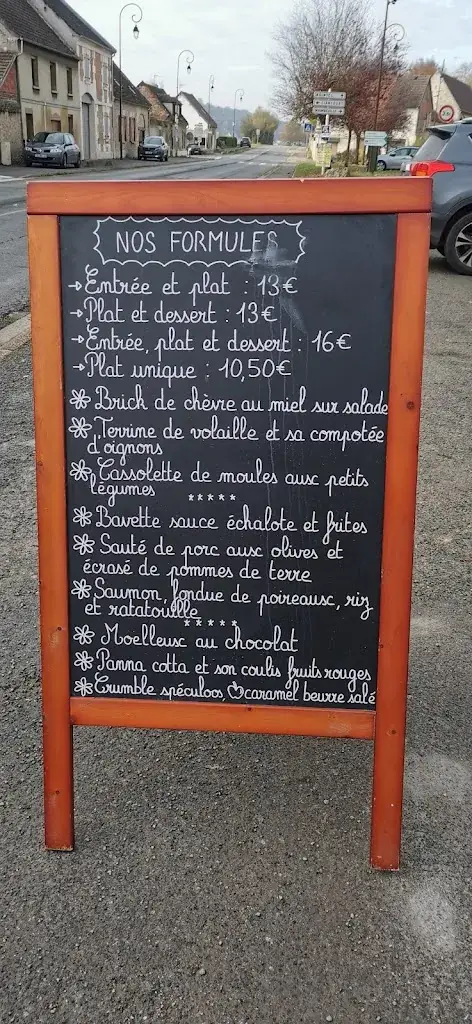 NOS FORMULES
→Entrée et plat : 13€
→Plat et dessert : 13€
→Entrée, plat et dessert : 16€
→Plat unique : 10,50€
Brick de chèvre au miel sur salade
Terrine de volaille et sa compotée
d'oignons
Cassolette de moules aux petits
légumes
*****
Bavette sauce échalote et frites
Sauté de porc aux olives et
écrasé de pommes de terre
Saumon, fondue de poireaux, riz
et ratatouille
*****
Moelleux au chocolat
Panna cotta et son coulis fruits rouges
Crumble spéculoos, caramel beurre salé